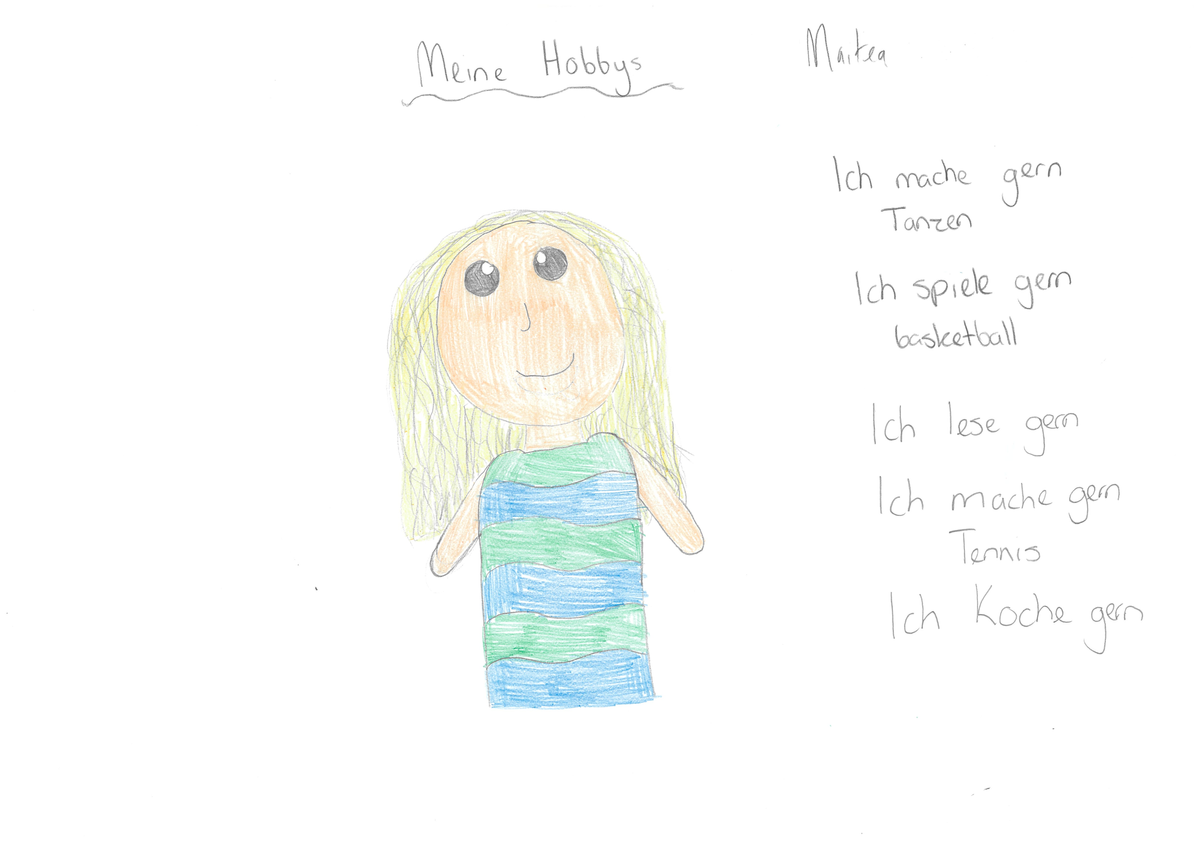 Meine Hobbys
Maitea
Ich mache gern
Tanzen
Ich spiele gern
basketball
Ich lese gern
Ich mache gern
Tennis
Ich Koche gern